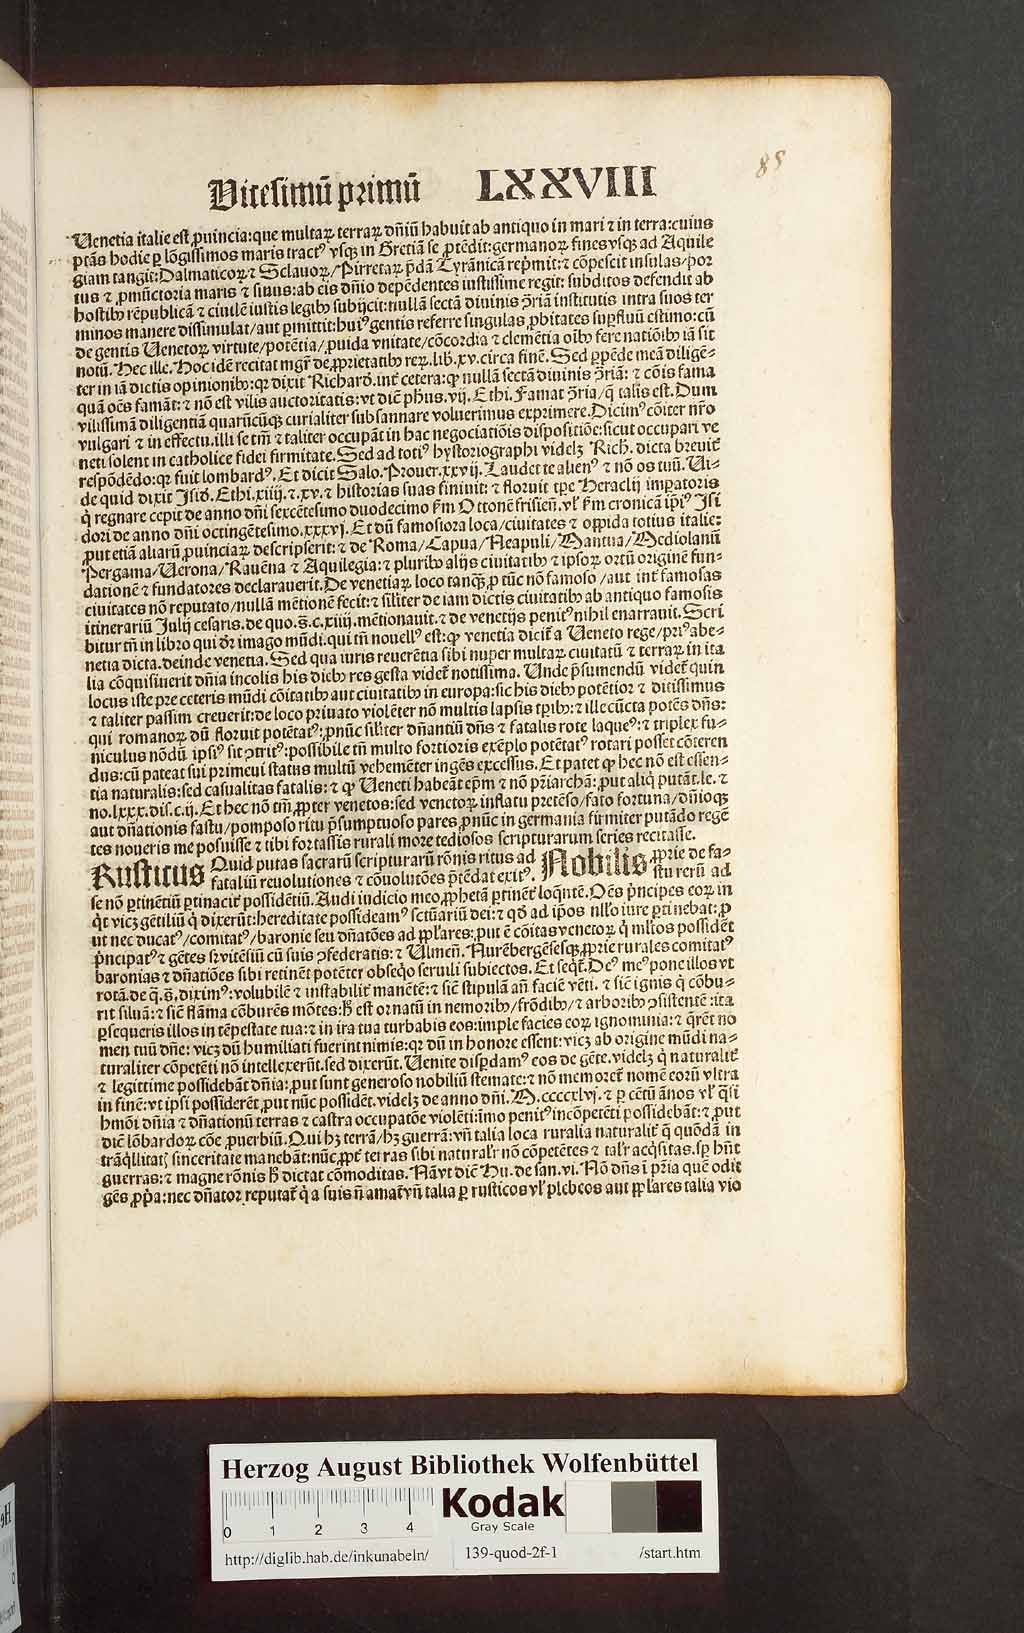 Vicesimũ primũ LXXVIII
85
Uenetia italie est ꝓuincia: que multaꝝ terraꝝ dñiũ habuit ab antiquo in mari ⁊ in terra: cuius
ptãs hodie ꝑ lõgissimos maris tractꝰ vsqꝫ in Gretiã se ꝓtẽdit: germanoꝝ fines vsqꝫ ad Aquile
giam tangit: Dalmaticoꝝ ⁊ Sclauoꝝ / Pirretaꝝ p̃dã Tyrãnicã rep̃mit: ⁊ cõpescit insulas / por
tus ⁊ ꝓmũctoria maris ⁊ sinus: ab eis dñio depẽdentes iustissime regit: subditos defendit ab
hostibꝫ rẽpublicã ⁊ ciuilẽ iustis legibꝫ subijcit: nullã sectã diuinis ꝯ̃riã institutis intra suos ter
minos manere dissimulat / aut ꝑmittit: huiꝰ gentis referre singulas ꝓbitates suꝑfluũ estimo: cũ
de gentis Uenetoꝝ virtute / potẽtia / ꝓuida vnitate / cõcordia ⁊ clemẽtia oĩbꝫ fere natiõibꝫ iã sit
notũ. Hec ille. Hoc idẽ recitat mgr̃ de ꝓprietatibꝫ reꝝ. lib. xv. circa finẽ. Sed ꝑpẽde meã diligẽ-
ter in iã dictis opinionibꝫ: qꝛ dixit Richard̃. int̃ cetera: ꝙ nullã sectã diuinis ꝯ̃riã: ⁊ cõis fama
quã oẽs famãt: ⁊ nõ est vilis auctoritatis: vt dic̃ phũs. vij. Ethi. Famat ꝯ̃ria / q̃ talis est. Dum
vilissimã diligentiã quarũcũqꝫ curialiter subsannare voluerimus exprimere. Dicimꝰ cõiter nr̃o
vulgari ⁊ in effectu. illi se tm̃ ⁊ taliter occupãt in hac negociatiõis dispositiõe: sicut occupari ve
neti solent in catholice fidei firmitate. Sed ad totiꝰ hystoriographi videlꝫ Rich̃. dicta breuit̃
respõdẽdo: qꝛ fuit lombardꝰ. Et dicit Salo. Prouer. xxvij. Laudet te alienꝰ ⁊ nõ os tuũ. Ui-
de quid dixit Jsid̃. Ethi. xiiij. ⁊. xv. ⁊ historias suas finiuit: ⁊ floruit tpe Heraclij imꝑatoris
q̃ regnare cepit de anno dñi sexcẽtesimo duodecimo ẜm Ottonẽ frisieñ. vl̃ ẜm cronicã ip̃iꝰ Jsi
dori de anno dñi octingẽtesimo. xxxvj. Et dũ famosiora loca / ciuitates ⁊ oppida totius italie:
ꝓut etiã aliarũ ꝓuinciaꝝ descripserit: ⁊ de Roma / Capua / Neapuli / Mantua / Mediolanũ
Pergama / Uerona / Rauẽna ⁊ Aquilegia: ⁊ pluribꝫ alijs ciuitatibꝫ ⁊ ipsoꝝ ortũ originẽ fun-
dationẽ ⁊ fundatores declarauerit. De venetiaꝝ loco tanqꝫ ꝓ tũc nõ famoso / aut int̃ famosas
ciuitates nõ reputato / nullã mẽtionẽ fecit: ⁊ silĩter de iam dictis ciuitatibꝫ ab antiquo famosis
itinerariũ Julij cesaris. de quo. s̃. c. xiiij. mẽtionauit. ⁊ de venetijs penitꝰ nihil enarrauit. Scri
bitur tñ in libro qui dr̃ imago mũdi. qui tñ nouellꝰ est: ꝙ venetia dicit̃ a Ueneto rege / priꝰ abe-
netia dicta. deinde venetia. Sed qua iuris reuerẽtia sibi nuper multaꝝ ciuitatũ ⁊ terraꝝ in ita
lia cõquisiuerit dñia incolis his diebꝫ res gesta videt̃ notissima. Unde p̃sumendũ videt̃ quin
locus iste pre ceteris mũdi cõitatibꝫ aut ciuitatibꝫ in europa: sic his diebꝫ potẽtior ⁊ ditissimus
⁊ taliter passim creuerit: de loco priuato violẽter nõ multis lapsis tpibꝫ: ⁊ ille cũcta potẽs dñs:
qui romanoꝝ dũ floruit potẽtatꝰ: ꝓ nũc silĩter dñantiũ dñs ⁊ fatalis rote laqueꝰ: ⁊ triplex fu-
niculus nõdũ ipsiꝰ sit ꝯtritꝰ: possibile tñ multo fortioris exẽplo potẽtatꝰ rotari posset cõteren
dus: cũ pateat sui primeui status multũ vehemẽter ingẽs excessus. Et patet ꝙ hec nõ est essen-
tia naturalis: sed casualitas fatalis: ⁊ ꝙ Ueneti habeãt ep̃m ⁊ nõ pr̃iarchã: ꝓut aliq̃ putãt. le. ⁊
no. lxxx. dis. c. ij. Et hec nõ tm̃ ꝓpter venetos: sed venetoꝝ inflatu pretẽso / fato fortuna / dñioqꝫ
aut dñationis fastu / pomposo ritu p̃sumptuoso pares ꝓ nũc in germania firmiter putãdo regẽ
tes noueris me posuisse ⁊ tibi fortassis rurali more tediosos scripturarum series recitasse.
Rusticus Quid putas sacrarũ scripturarũ rõnis ritus ad Nobilis ꝓprie de fa-
fataliũ reuolutiones ⁊ cõuolutões p̃tẽdat exitꝰ. stu rerũ ad
se nõ ꝑtinẽtiũ ꝑtinacit̃ possidẽtiũ. Audi iudicio meo ꝓphetã ꝑtinẽt̃ loq̃ntẽ. Oẽs p̃ncipes eoꝝ in
q̃t vicꝫ gẽtiliũ q̃ dixerũt: hereditate possideamꝰ sctũariũ dei: ⁊ qd̃ ad ip̃os nllo iure ꝑtinebat: ꝓ
ut nec ducatꝰ / comitatꝰ / baronie seu dñatões ad ppl̃ares: ꝓut ẽ cõitas venetoꝝ q̃ ml̃tos possidẽt
p̃ncipatꝰ ⁊ gẽtes sꝛvitẽsiũ cũ suis ꝯfederatis: ⁊ Ulmeñ. Nurẽbergẽsesqꝫ ꝓprie rurales comitatꝰ
baronias ⁊ dñatiões sibi retinẽt potẽter obseq̃o seruili subiectos. Et seqt̃. Deꝰ meꝰ pone illos vt
rotã. de q̃. s̃. diximꝰ: volubilẽ ⁊ instabilit̃ manẽtẽ: ⁊ sic̃ stipulã añ faciẽ vẽti. ⁊ sic̃ ignis q̃ cõbu-
rit siluã: ⁊ sic̃ flãma cõburẽs mõtes: h̃ est ornatũ in nemoribꝫ / frõdibꝫ / ⁊ arboribꝫ ꝯsistentẽ: ita
ꝑsequeris illos in tẽpestate tua: ⁊ in ira tua turbabis eos: imple facies eoꝝ ignominia: ⁊ q̃rẽt no
men tuũ dñe: vicꝫ dũ humiliati fuerint nimis: qꝛ dũ in honore essent: vicꝫ ab origine mũdi na-
turaliter cõpetẽti nõ intellexerũt. sed dixerũt. Uenite disꝑdamꝰ eos de gẽte. videlꝫ q̃ naturalit̃
⁊ legittime possidebãt dñia: ꝓut sunt generoso nobiliũ stemate: ⁊ nõ memoret̃ nomẽ eorũ vltra
in finẽ: vt ipsi possiderẽt ꝓut nũc possidẽt. videlꝫ de anno dñi. M. ccccxlvj. ⁊ ꝑ cẽtũ ãnos vl̃ q̃si
hmõi dñia ⁊ dñationũ terras ⁊ castra occupatõe violẽti: imo penitꝰ incõpetẽti possidebãt: ⁊ ꝓut
dic̃ lõbardoꝝ cõe ꝓuerbiũ. Qui hꝫ terrã / hꝫ guerrã: vñ talia loca ruralia naturalit̃ q̃ quõdã in
trãq̃llitatꝭ sinceritate manebãt: nũc ꝓpt̃ terras sibi natural̃r nõ cõpetẽtes ⁊ tal̃r acq̃sitas. sꝑ hñt
guerras: ⁊ magne rõnis h̃ dictat cõmoditas. Nã vt dic̃ Hu. de san. vi. Nõ dñs ĩ pr̃ia quẽ odit
gẽs ꝓp̃a: nec dñatoꝝ reputat̃ q̃ a suis ñ amat̃ vñ talia ꝑ rusticos vl̃ plebeos aut ppl̃ares talia vio
Herzog August Bibliothek Wolfenbüttel
0 1 2 3 4
Kodak
Gray Scale
http://diglib.hab.de/inkunabeln/ 139-quod-2f-1 /start.htm